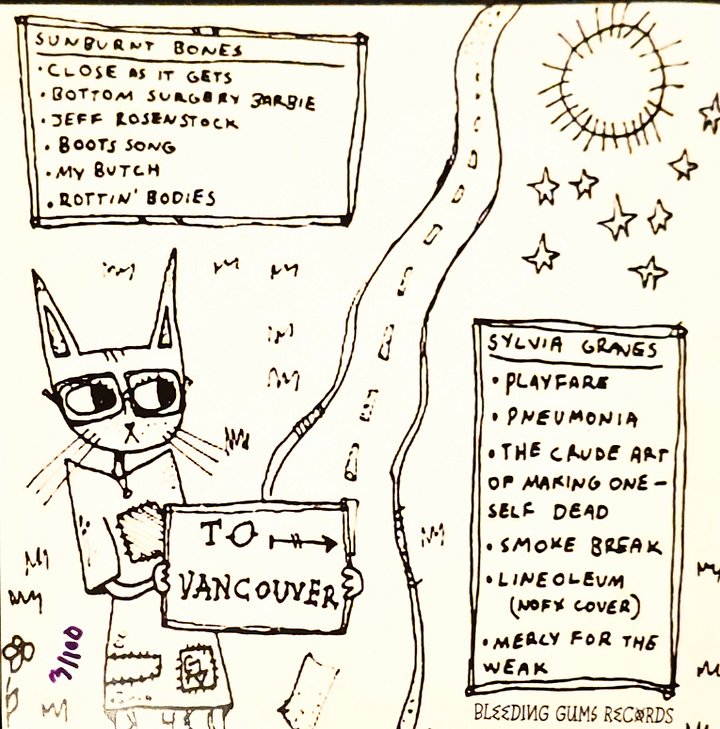 SUNBURNT BONES
• CLOSE AS IT GETS
• BOTTOM SURGERY BARBIE
• JEFF ROSENSTOCK
• BOOTS SONG
• MY BUTCH
• ROTTIN' BODIES
SYLVIA GRAVES
• PLAYFARE
• PNEUMONIA
• THE CRUDE ART
OF MAKING ONE-
SELF DEAD
• SMOKE BREAK
• LINEOLEUM
(NOFX COVER)
• MERCY FOR THE
WEAK
TO
VANCOUVER
3/100
BLEEDING GUMS RECORDS